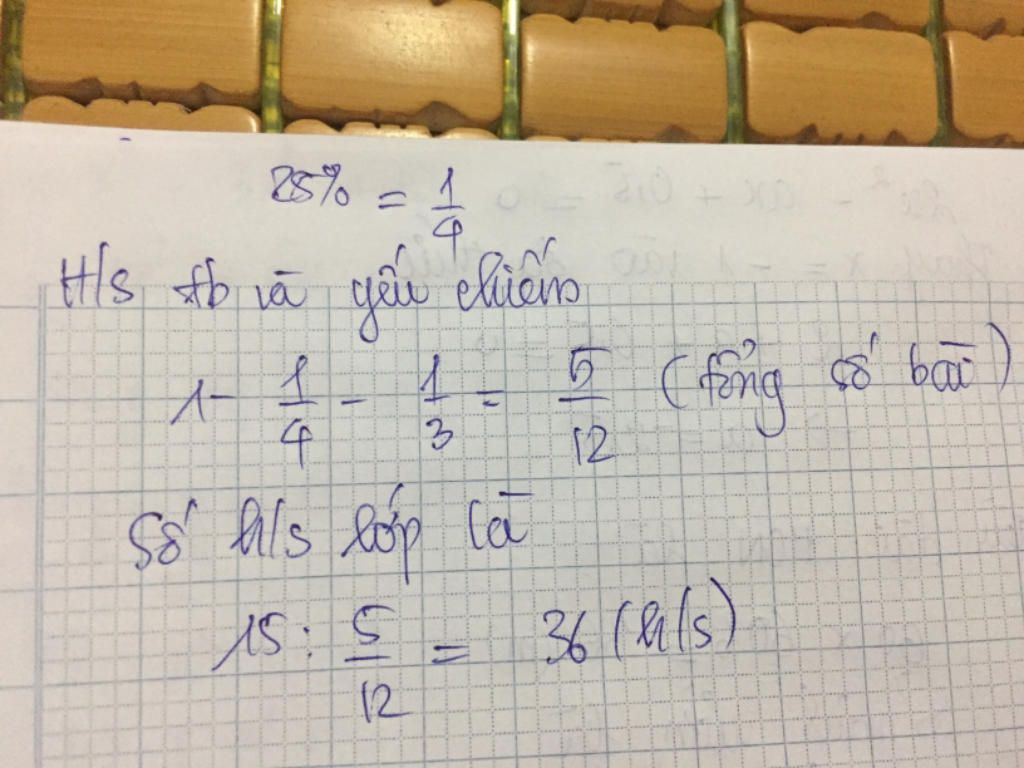 25% = 1/4
H/s tb và yếu chiếm
1 - 1/4 - 1/3 = 5/12 (tổng số bài)
Số h/s lớp là
15 : 5/12 = 36 (h/s)